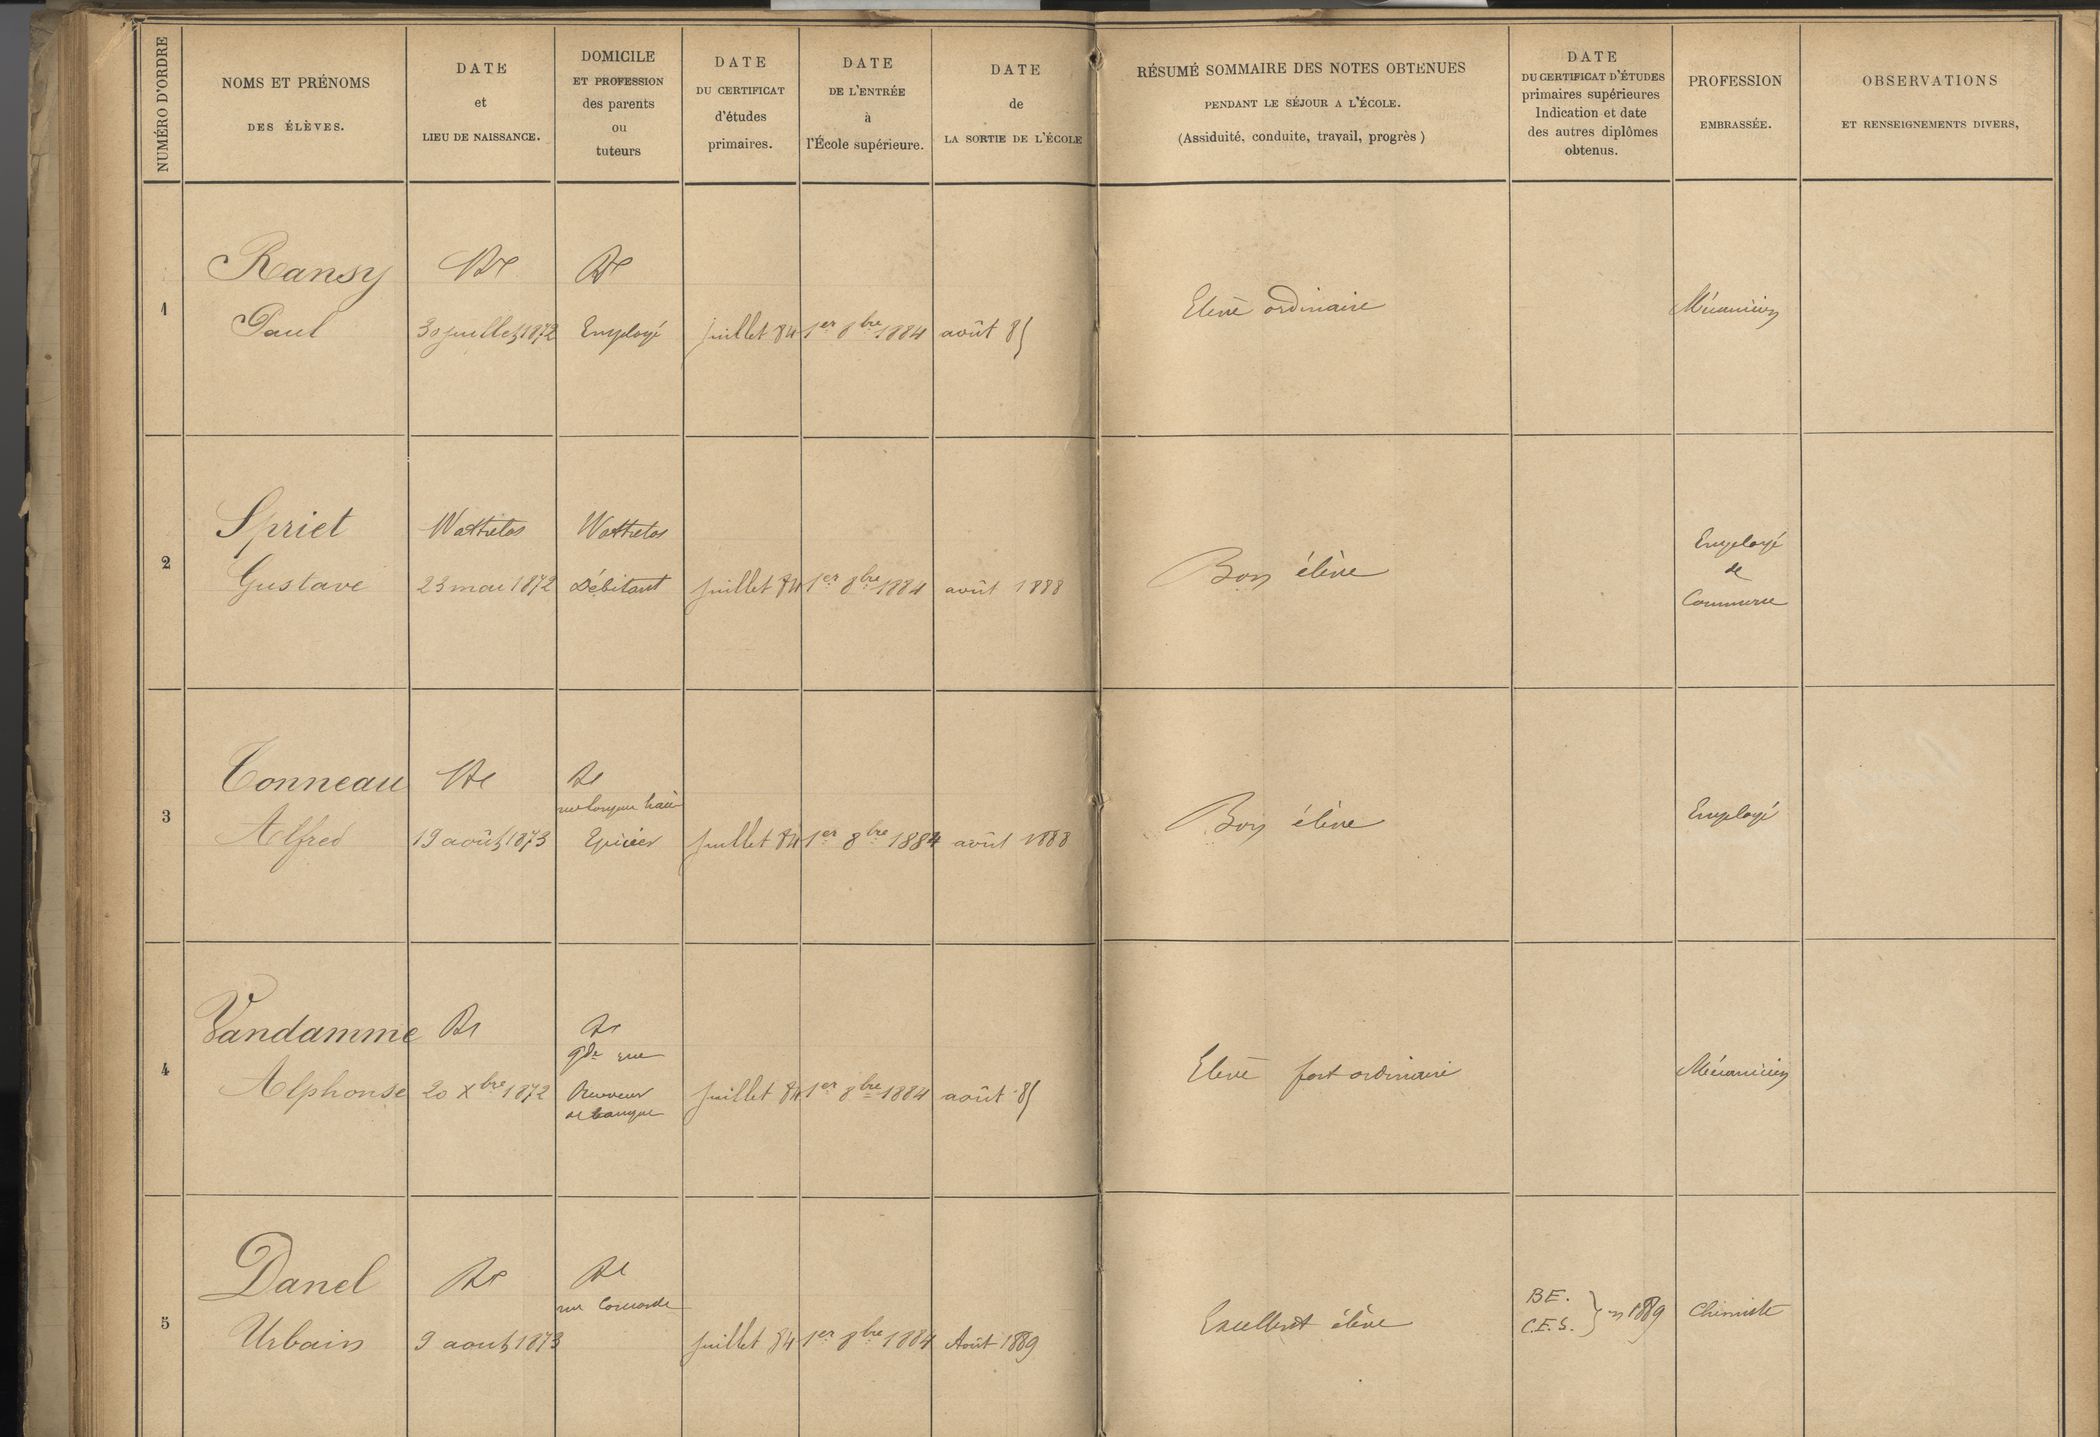 NUMÉRO D'ORDRE
NOMS ET PRÉNOMS
DES ÉLÈVES.
DATE
et
LIEU DE NAISSANCE.
DOMICILE
ET PROFESSION
des parents
ou
tuteurs
DATE
DU CERTIFICAT
d'études
primaires.
DATE
DE L'ENTRÉE
à
l'École supérieure.
DATE
de
LA SORTIE DE L'ÉCOLE
RÉSUMÉ SOMMAIRE DES NOTES OBTENUES
PENDANT LE SÉJOUR A L'ÉCOLE.
(Assiduité, conduite, travail, progrès)
DATE
DU CERTIFICAT D'ÉTUDES
primaires supérieures
Indication et date
des autres diplômes
obtenus.
PROFESSION
EMBRASSÉE.
OBSERVATIONS
ET RENSEIGNEMENTS DIVERS,
1
Ransy
Paul
30 juillet 1872
Employé
juillet 84
1er 8bre 1884
août 85
Elève ordinaire
Mécanicien
2
Spriet
Gustave
Wattrelos
23 mai 1872
Wattrelos
Débitant
juillet 84
1er 8bre 1884
août 1888
Bon élève
Employé
de
Commerce
3
Tonneau
Alfred
19 août 1873
rue longue haie
Epicier
juillet 84
1er 8bre 1884
août 1888
Bon élève
Employé
4
Vandamme
Alphonse
20 Xbre 1872
gde rue
Receveur
de banque
juillet 84
1er 8bre 1884
août 85
Elève fort ordinaire
Mécanicien
5
Danel
Urbain
9 août 1873
rue Concorde
juillet 84
1er 8bre 1884
Août 1889
Excellent élève
BE.
C.E.S. } en 1889
Chimiste